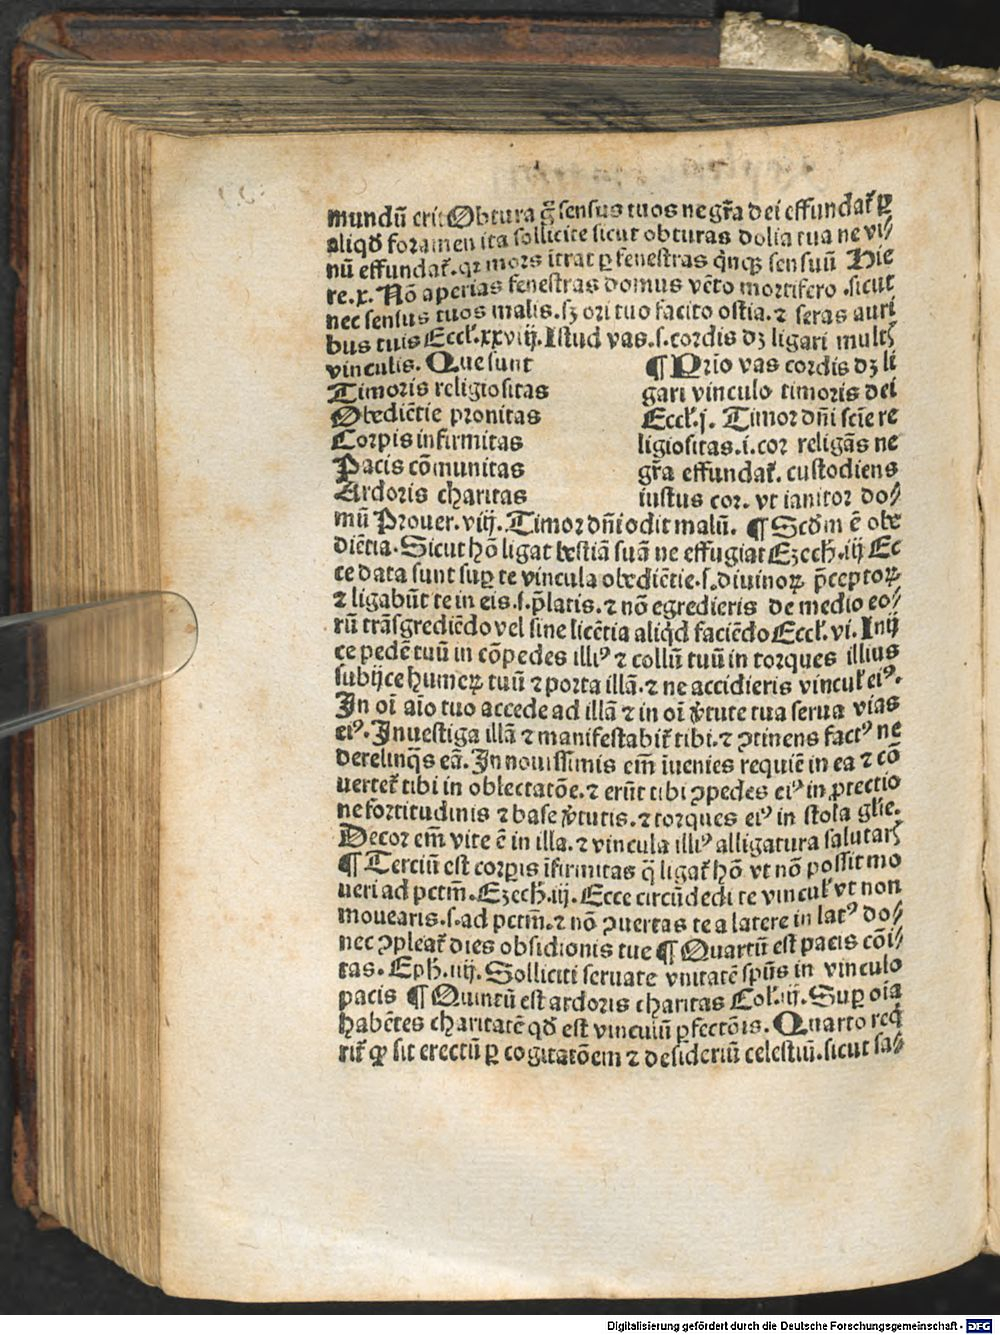 mundū erit Obtura g̃ sensus tuos ne gr̄a dei effundat᷑ ꝑ
aliqđ foramen ita sollicite sicut obturas dolia tua ne vi⸗
nū effundat᷑. qꝛ mors ītrat ꝑ fenestras q̇nqꝫ sensuū Hie
re.x. Nō aperias fenestras domus vēto mortifero .sicut
nec sensus tuos malis.sꝫ ori tuo facito ostia.⁊ seras auri
bus tuis Eccl᷑.xxviij. Istud vas.s.cordis dꝫ ligari multꝭ
vinculis. Que sunt
Timoris religiositas
Obediētie pronitas
Corpis infirmitas
Pacis cōmunitas
Ardoris charitas
¶ Prīo vas cordis dꝫ li
gari vinculo timoris dei
Eccl᷑.j. Timor dn̄i scīe re
ligiositas.i.cor religās ne
gr̄a effundat᷑. custodiens
iustus cor. vt ianitor do⸗
mū Prouer.viij. Timor dn̄i odit malū. ¶ Scd̄m ē obe
diētia. Sicut hō ligat bestiā suā ne effugiat Ezech.iij Ec
ce data sunt suꝑ te vincula obediētie.s.diuinoꝝ p̄ceptoꝝ
⁊ ligabūt te in eis.s.p̄latis.⁊ nō egredieris de medio eo⸗
rū trāsgrediēdo vel sine licētia aliq̇d faciēdo Eccl᷑.vi. Inij
ce pedē tuū in cōpedes illiꝰ ⁊ collū tuū in torques illius
subijce humeꝝ tuū ⁊ porta illā.⁊ ne accidieris vincul᷑ eiꝰ.
In oī aīo tuo accede ad illā ⁊ in oī v̄tute tua serua vias
eiꝰ. Inuestiga illā ⁊ manifestabit᷑ tibi.⁊ ꝯtinens factꝰ ne
derelinq̄s eā. In nouissimis em̄ īuenies requiē in ea ⁊ cō
uertet᷑ tibi in oblectatōe.⁊ erūt tibi ꝯpedes eiꝰ in ꝓtectio
ne fortitudinis ⁊ base v̄tutis.⁊ torques eiꝰ in stola glīe.
Decor em̄ vite ē in illa.⁊ vincula illiꝰ alligatura salutarꝭ
¶ Terciū est corꝑis īfirmitas q̄ ligat᷑ hō vt nō possit mo
ueri ad pctm̄. Ezech.iij. Ecce circūdedi te vincul᷑ vt non
mouearis.s.ad pctm̄.⁊ nō ꝯuertas te a latere in latꝰ do⸗
nec ꝯpleat᷑ dies obsidionis tue ¶ Quartū est pacis cōi⸗
tas. Eph.iiij. Solliciti seruate vnitatē spūs in vinculo
pacis ¶ Quintū est ardoris charitas Col᷑.iij. Suꝑ oīa
habētes charitatē qđ est vinculū ꝑfectōis. Quarto req̇
rit᷑ ꝙ sit erectū ꝑ cogitatōem ⁊ desideriū celestiū.sicut sa⸗
Digitalisierung gefördert durch die Deutsche Forschungsgemeinschaft - DFG